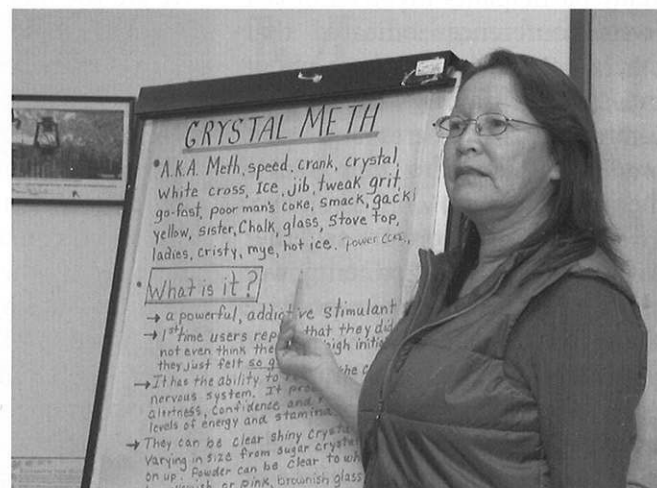 CRYSTAL METH
• A.K.A. Meth, speed, crank, crystal,
white cross, Ice, jib, tweak grit,
go-fast, poor man's coke, smack, gack,
yellow, sister, Chalk, glass, Stove top,
ladies, cristy, mye, hot ice. Power
• What is it?
→ a powerful, addictive stimulant
→ 1st time users that they did
not even think high
they just felt so
→ It has the ability to
nervous system. It
alertness, confidence and
levels of energy and stamina
→ They can be clear shiny
varying in size from sugar
on up. Powder can be clear to
or pink, brownish glass